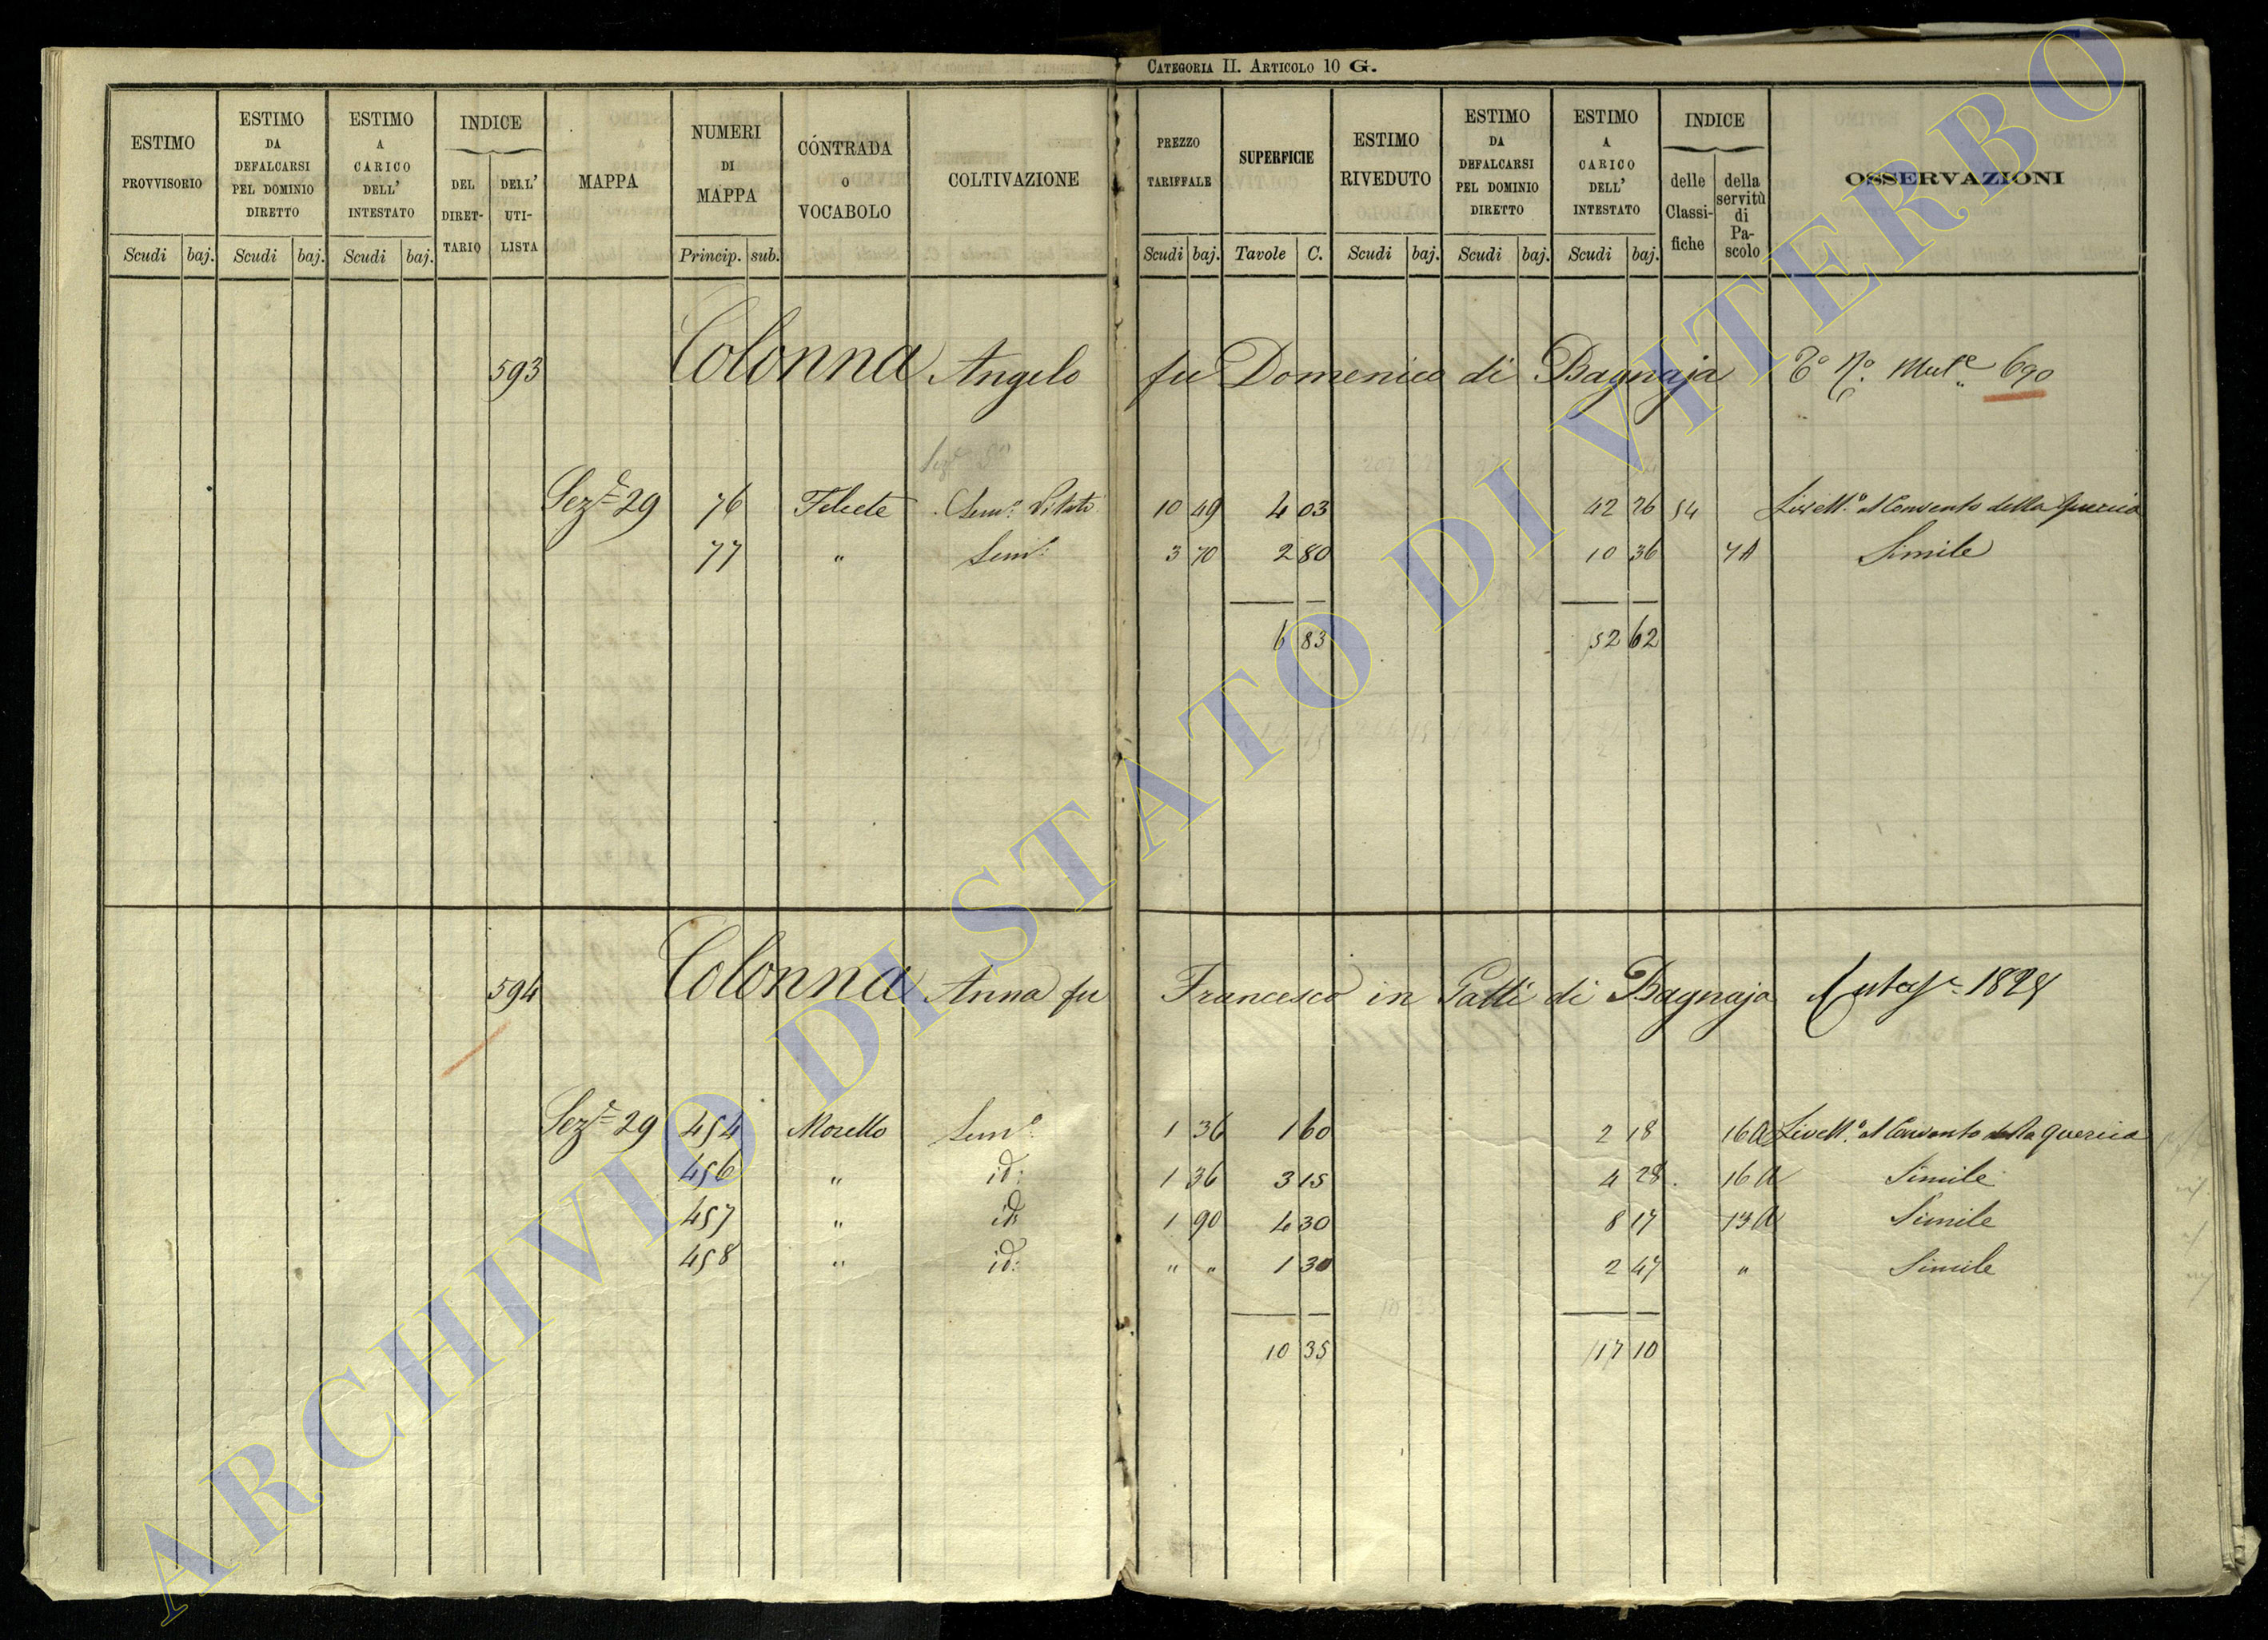 CATEGORIA II. ARTICOLO 10 G.
ESTIMO PROVVISORIO
Scudi baj.
ESTIMO DA DEFALCARSI PEL DOMINIO DIRETTO
Scudi baj.
ESTIMO A CARICO DELL' INTESTATO
Scudi baj.
INDICE
DEL DIRET-TARIO
DELL' UTI-LISTA
MAPPA
NUMERI DI MAPPA
Princip. sub.
CÓNTRADA O VOCABOLO
COLTIVAZIONE
PREZZO TARIFFALE
Scudi baj.
SUPERFICIE
Tavole C.
ESTIMO RIVEDUTO
Scudi baj.
ESTIMO DA DEFALCARSI PEL DOMINIO DIRETTO
Scudi baj.
ESTIMO A CARICO DELL' INTESTATO
Scudi baj.
INDICE
delle Classi-fiche
della servitù di Pa-scolo
OSSERVAZIONI
593 Colonna Angelo fu Domenico di Bagnaja 690
Sez.e 29 76 Sem.o Vitato 10 49 4 03 42 26 54 Livell.o al Convento della Quercia
77 " Sem.o 3 70 2 80 10 36 7A Simile
6 83 52 62
594 Colonna Anna fu Francesco in Gatti di Bagnaja
Sez.e 29 454 Morello Sem.o 1 36 1 60 2 18 16A Livell.o al Convento della Quercia
456 " id: 1 36 3 15 4 28 16A Simile
457 " id: 1 90 4 30 8 17 13A Simile
458 " id: " " 1 30 2 47 " Simile
10 35 17 10
ARCHIVIO DI STATO DI VITERBO